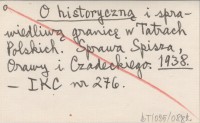 O historyczną i spra-
wiedliwą granicę w Tatrach
Polskich. Sprawa Spisza,
Orawy i Czadeckiego. 1938.
— IKC nr 276.